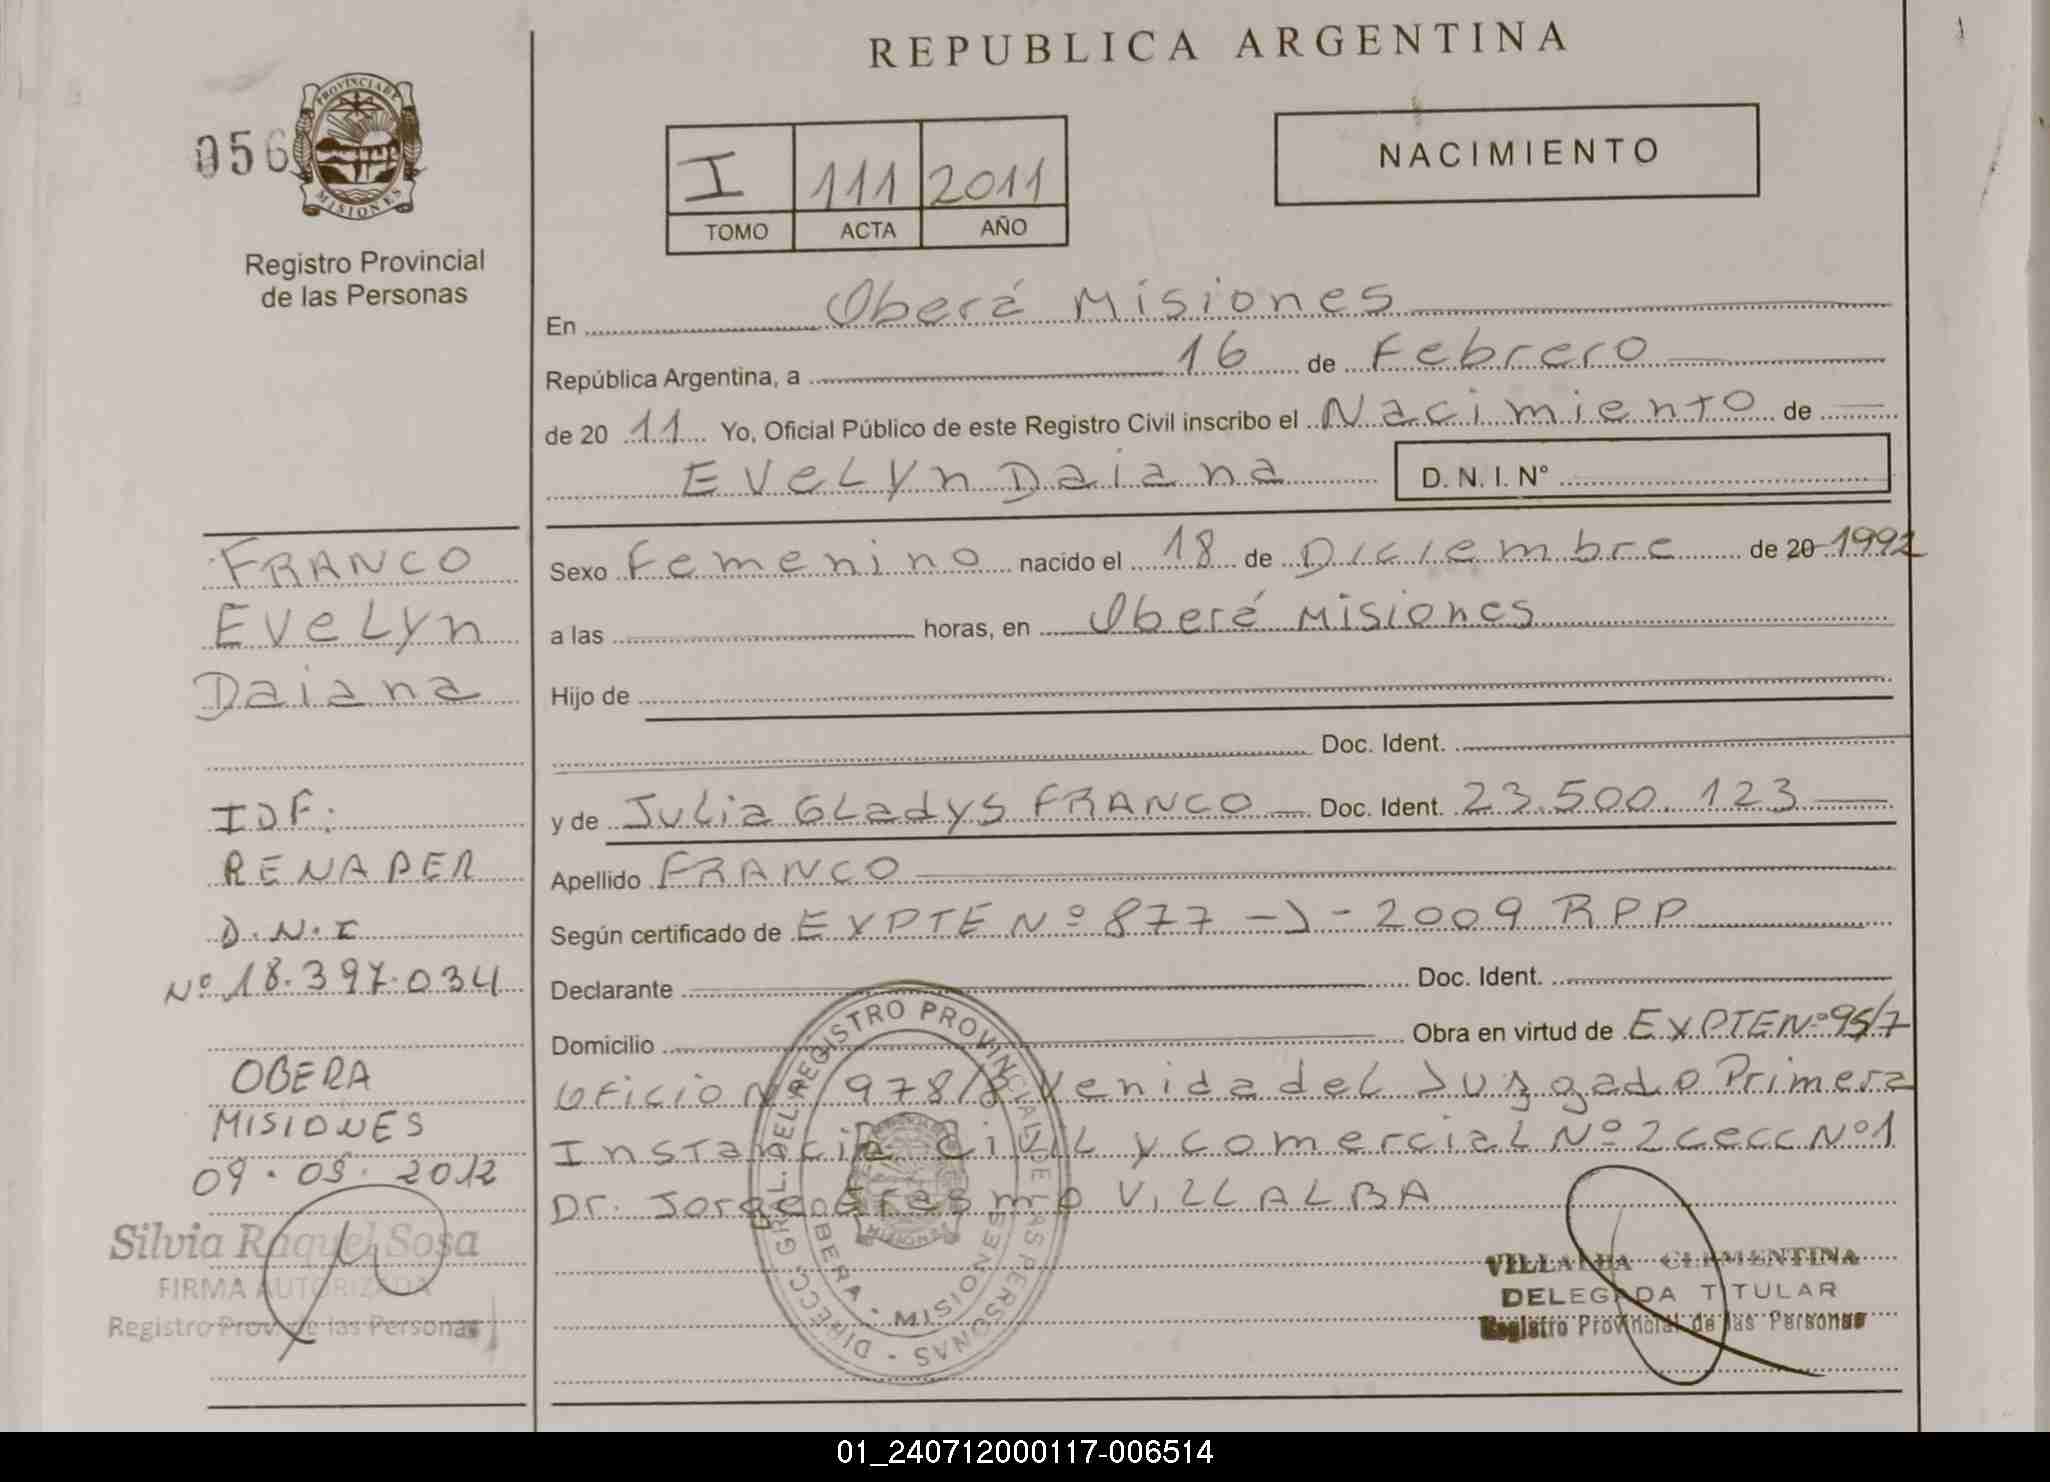 REPUBLICA ARGENTINA
056
PROVINCIA DE
MISIONES
Registro Provincial
de las Personas
I 111 2011
TOMO ACTA AÑO
NACIMIENTO
En Oberá Misiones
República Argentina, a 16 de Febrero
de 20 11 Yo, Oficial Público de este Registro Civil inscribo el Nacimiento de
Evelyn Daiana D. N. I. N°
FRANCO
Evelyn
Daiana
IDF:
RENAPER
D.N.I
Nº 18.397.034
OBERA
MISIONES
09.05.2012
Silvia Raquel Sosa
FIRMA AUTORIZADA
Registro Prov. de las Personas
Sexo Femenino nacido el 18 de Diciembre de 20 1992
a las horas, en Oberá Misiones
Hijo de
Doc. Ident.
y de Julia Gladys FRANCO Doc. Ident. 23.500.123
Apellido FRANCO
Según certificado de EXPTE Nº 877 -J- 2009 RPP
Declarante Doc. Ident.
Domicilio Obra en virtud de EXPTE Nº 95/7
Oficio Nº 978/8 Venida del Juzgado Primera
Instancia Civil y Comercial Nº 2 cecc Nº 1
Dr. Jorge Erasmo VILLALBA
DIRECC. GRAL. DEL REGISTRO PROVINCIAL DE LAS PERSONAS
OBERA - MISIONES
MISIONES
VILLALBA CLEMENTINA
DELEGADA TITULAR
Registro Provincial de las Personas
01_240712000117-006514